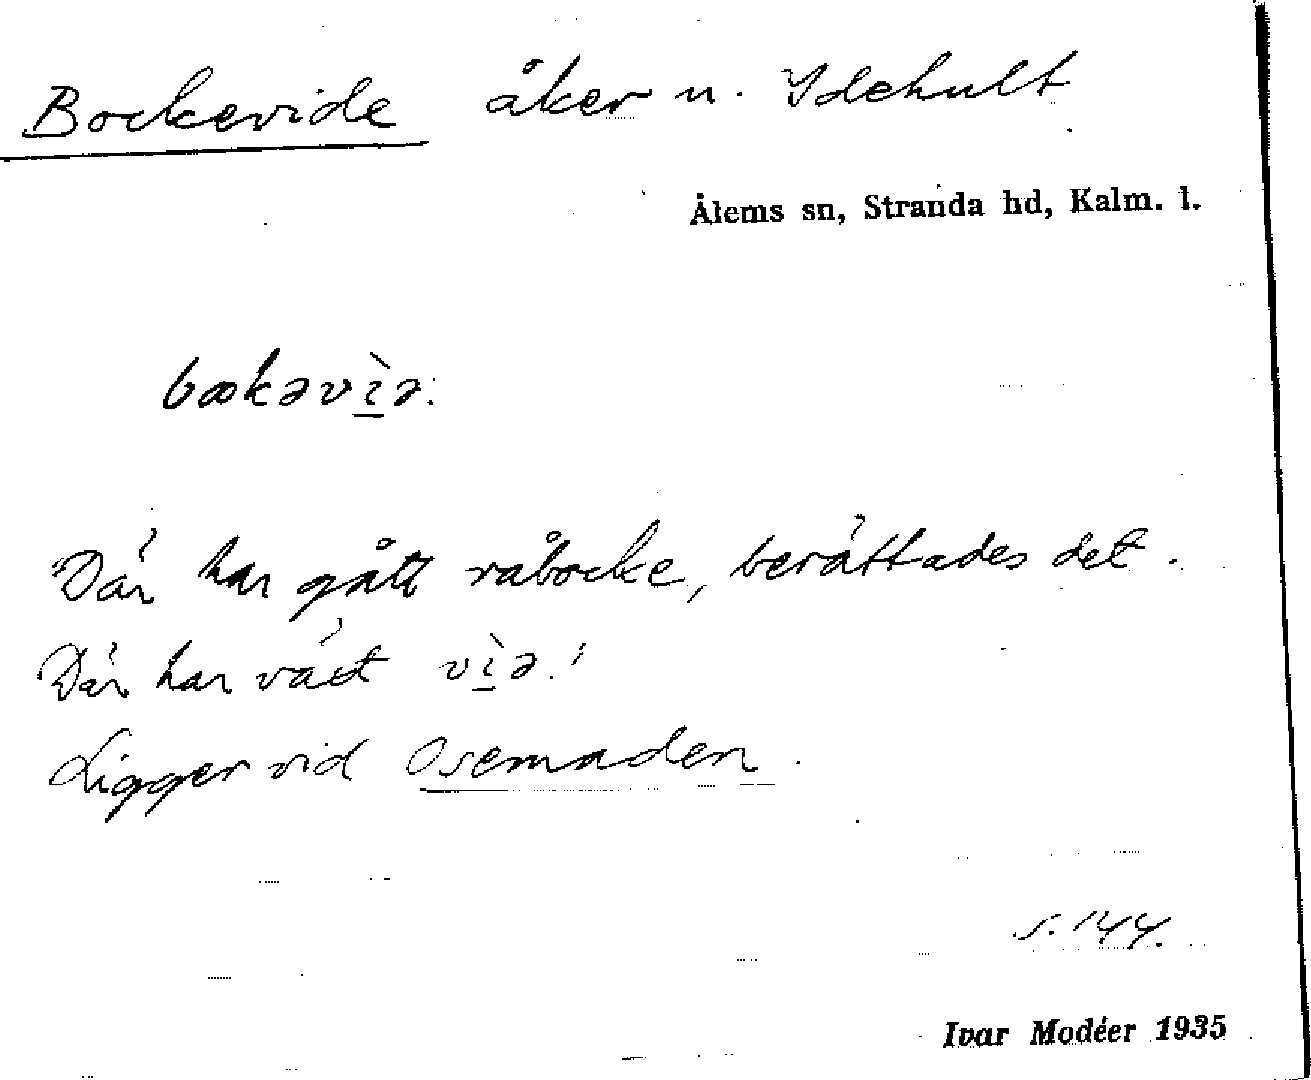 Bockevide åker u. Idehult
Ålems sn, Stranda hd, Kalm. l.
bɷkəvìə.
Där har gått råbocke, berättades det.
Där har växt vìə.!
Ligger vid Osemaden.
s. 144.
Ivar Modéer 1935